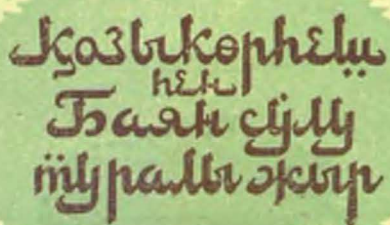 Қозыкөрпеш
пен
Баян сұлу
туралы жыр